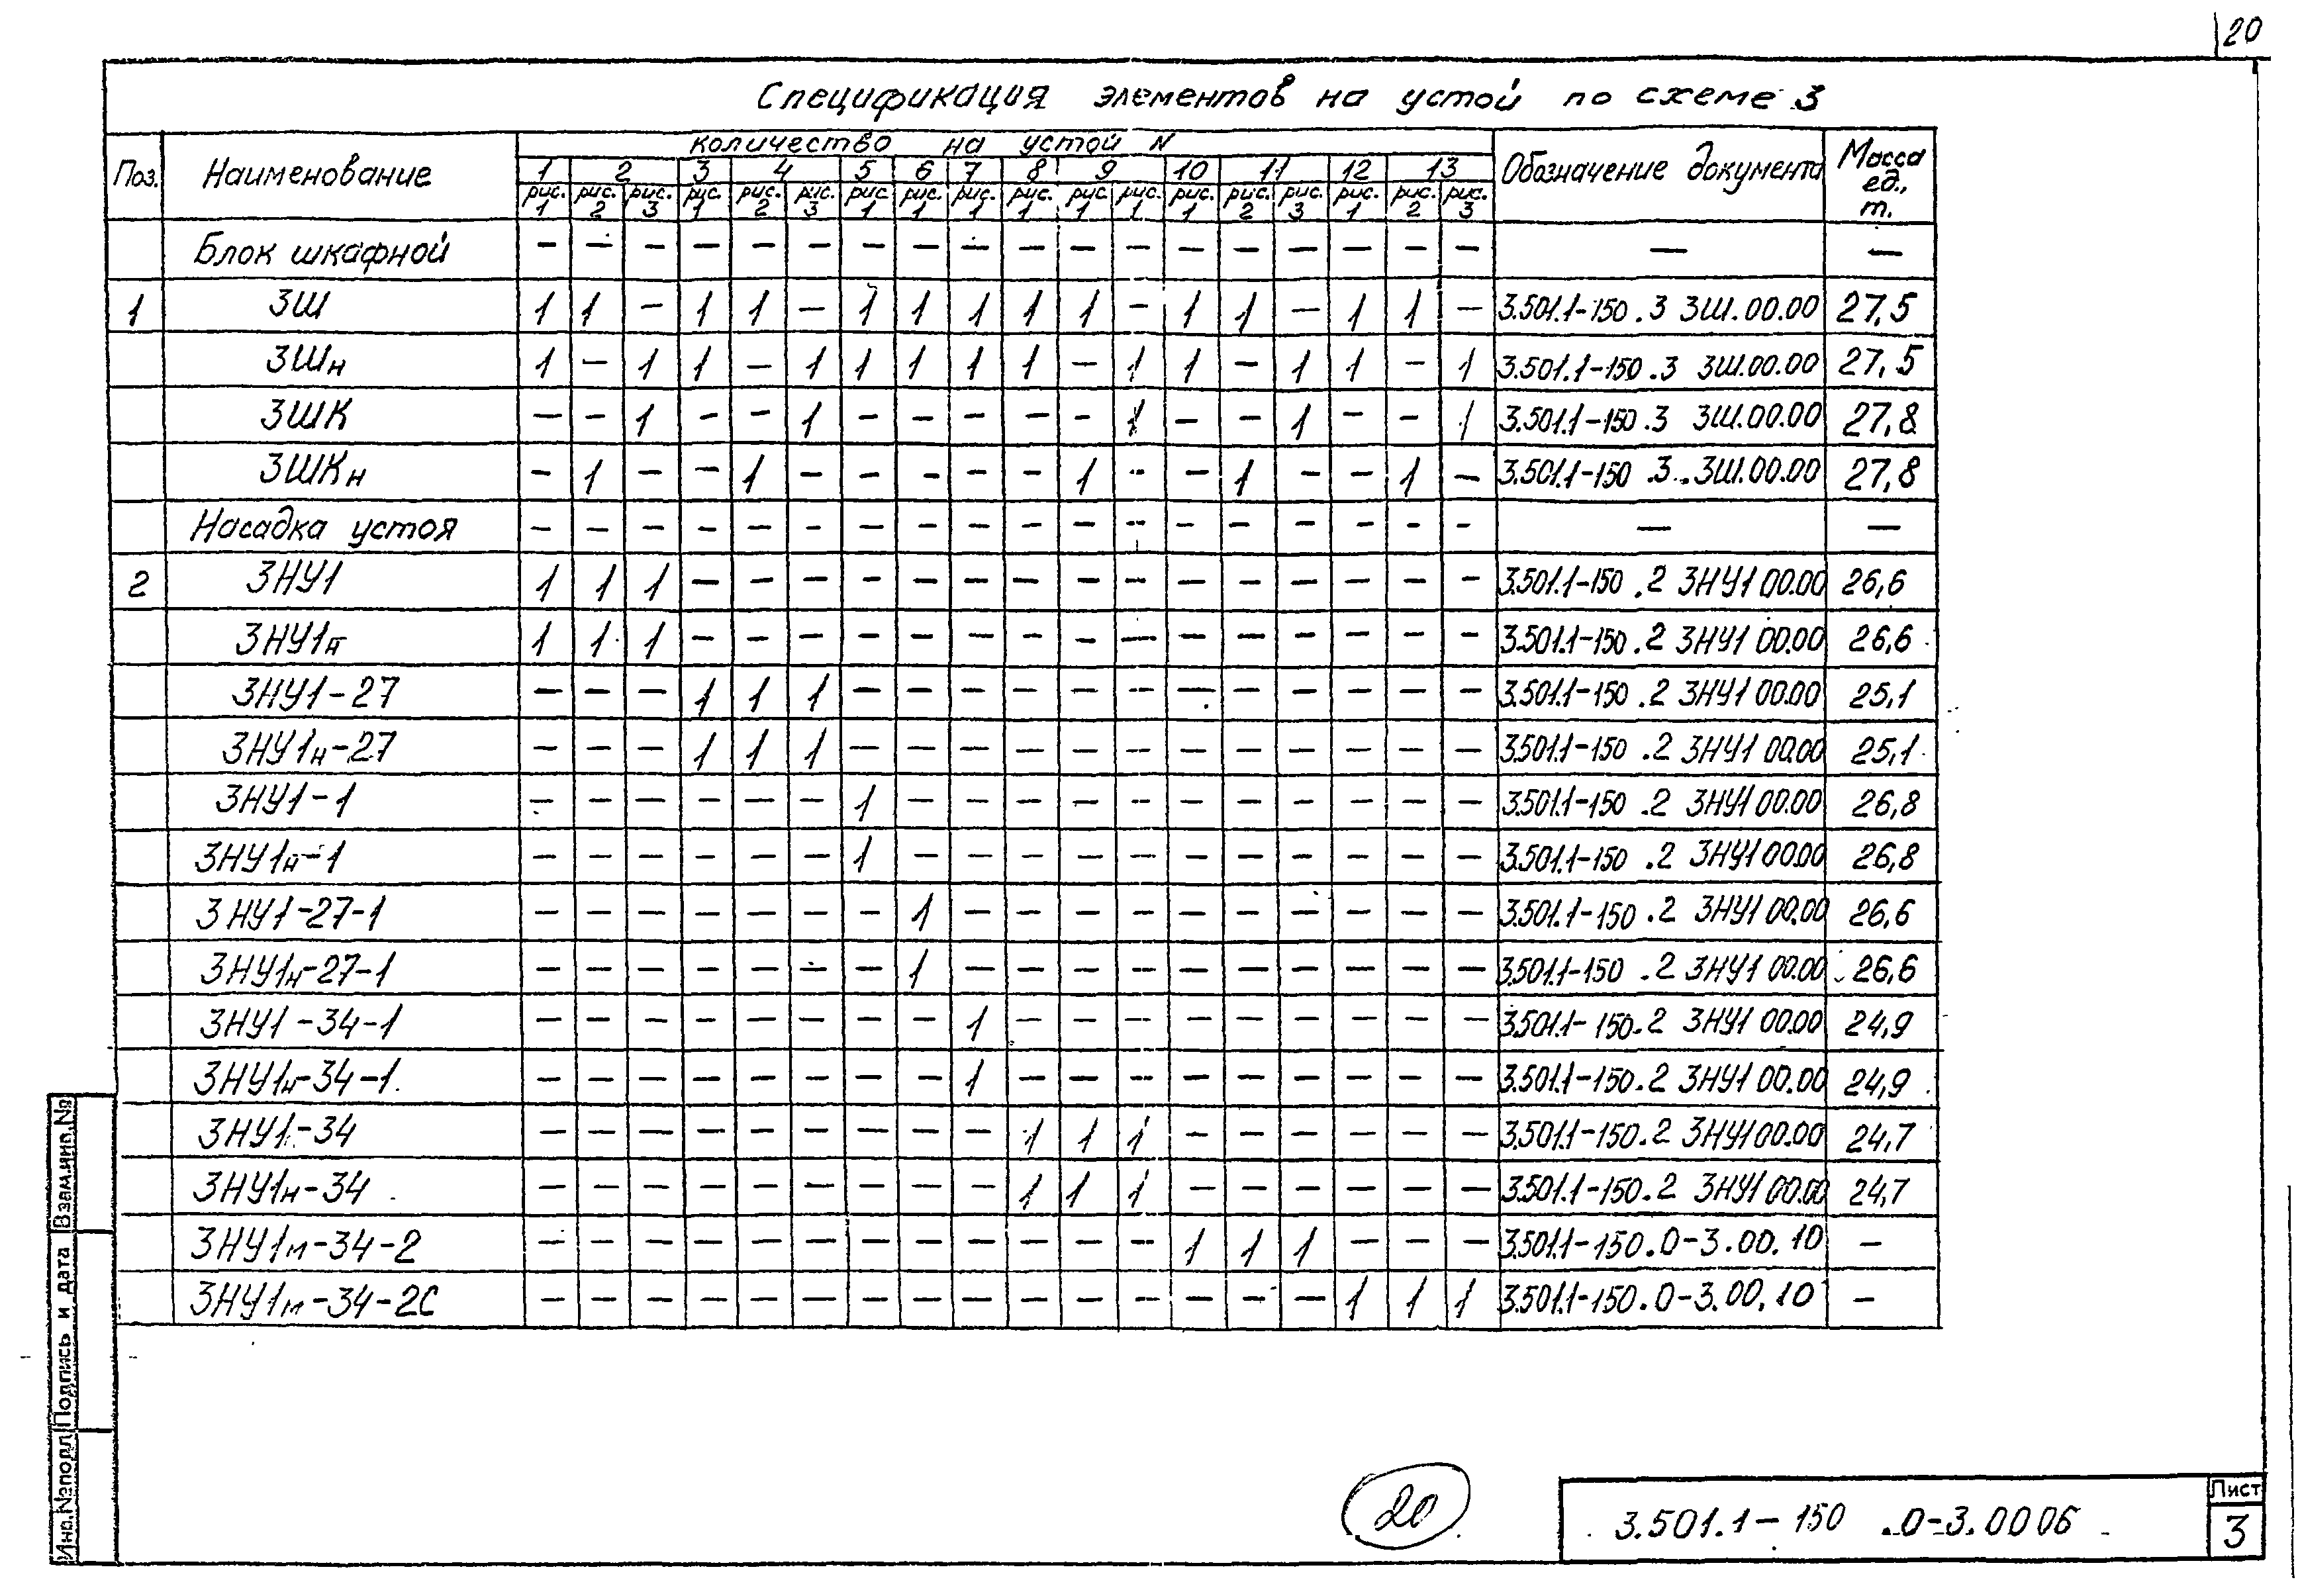 20
Спецификация элементов на устой по схеме 3
Поз. Наименование количество на устой N Обозначение документа Масса ед., т.
1 2 3 4 5 6 7 8 9 10 11 12 13
рис. 1 рис. 2 рис. 3 рис. 1 рис. 2 рис. 3 рис 1 рис. 1 рис. 1 рис. 1 рис. 1 рис. 1 рис. 1 рис. 2 рис. 3 рис. 1 рис. 2 рис. 3
Блок шкафной — — — — — — — — — — — — — — — — — — — —
1 3Ш 1 1 — 1 1 — 1 1 1 1 1 — 1 1 — 1 1 — 3.501.1-150.3 3Ш.00.00 27,5
3Шн 1 — 1 1 — 1 1 1 1 1 — 1 1 — 1 1 — 1 3.501.1-150.3 3Ш.00.00 27,5
3ШК — — 1 — — 1 — — — — — 1 — — 1 — — 1 3.501.1-150.3 3Ш.00.00 27,8
3ШКн — 1 — — 1 — — — — — 1 — — 1 — — 1 — 3.501.1-150.3.3Ш.00.00 27,8
Насадка устоя — — — — — — — — — — — — — — — — — — — —
2 3НУ1 1 1 1 — — — — — — — — — — — — — — — 3.501.1-150.2 3НУ1 00.00 26,6
3НУ1н 1 1 1 — — — — — — — — — — — — — — — 3.501.1-150.2 3НУ1 00.00 26,6
3НУ1-27 — — — 1 1 1 — — — — — — — — — — — — 3.501.1-150.2 3НУ1 00.00 25,1
3НУ1н-27 — — — 1 1 1 — — — — — — — — — — — — 3.501.1-150.2 3НУ1 00.00 25,1
3НУ1-1 — — — — — — 1 — — — — — — — — — — — 3.501.1-150.2 3НУ1 00.00 26,8
3НУ1н-1 — — — — — — 1 — — — — — — — — — — — 3.501.1-150.2 3НУ1 00.00 26,8
3НУ1-27-1 — — — — — — — 1 — — — — — — — — — — 3.501.1-150.2 3НУ1 00.00 26,6
3НУ1н-27-1 — — — — — — — 1 — — — — — — — — — — 3.501.1-150.2 3НУ1 00.00 26,6
3НУ1-34-1 — — — — — — — — 1 — — — — — — — — — 3.501.1-150.2 3НУ1 00.00 24,9
3НУ1н-34-1 — — — — — — — — 1 — — — — — — — — — 3.501.1-150.2 3НУ1 00.00 24,9
3НУ1-34 — — — — — — — — — 1 1 1 — — — — — — 3.501.1-150.2 3НУ1 00.00 24,7
3НУ1н-34 — — — — — — — — — 1 1 1 — — — — — — 3.501.1-150.2 3НУ1 00.00 24,7
3НУ1м-34-2 — — — — — — — — — — — — 1 1 1 — — — 3.501.1-150.0-3.00.10 —
3НУ1м-34-2С — — — — — — — — — — — — — — — 1 1 1 3.501.1-150.0-3.00.10 —
Взам.инв.№
Подпись и дата
Инв.№ подл.
20
3.501.1-150 .0-3.0006
Лист
3